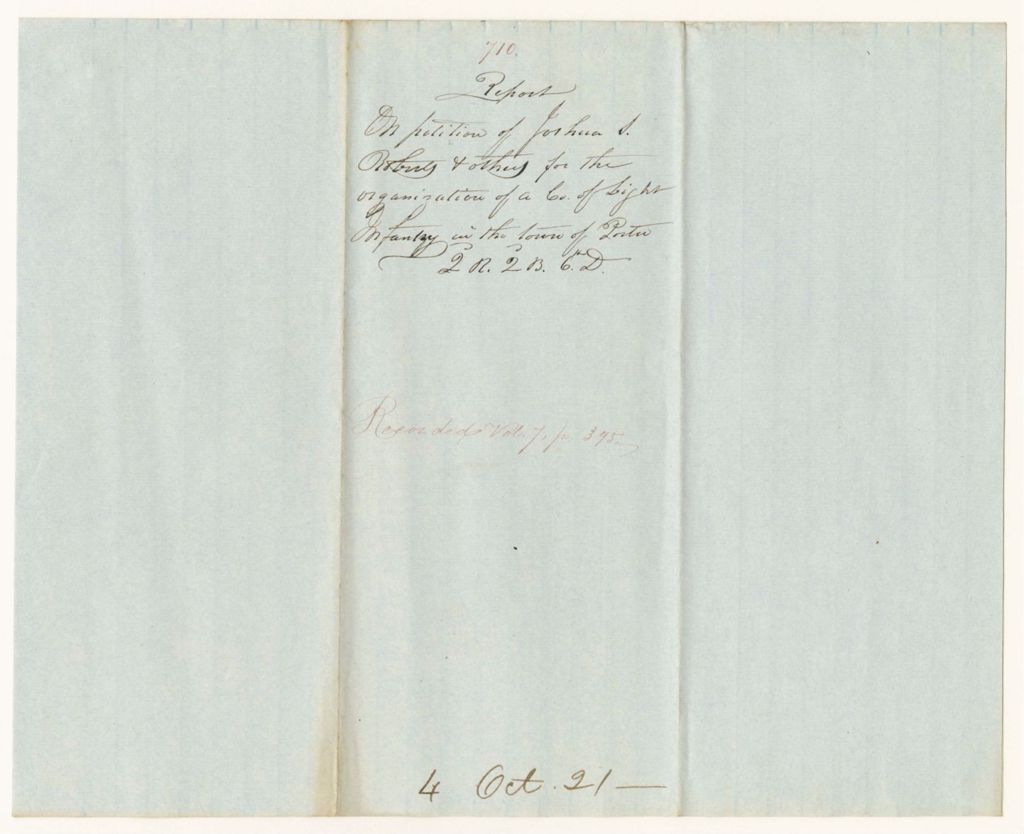 710.
Report
On petition of Joshua S.
Roberts & others for the
organization of a Co. of Light
Infantry in the town of Porter
2 R. 2 B. 6th D.
Recorded Vol. 7, p. 395.
4 Oct. 21 —